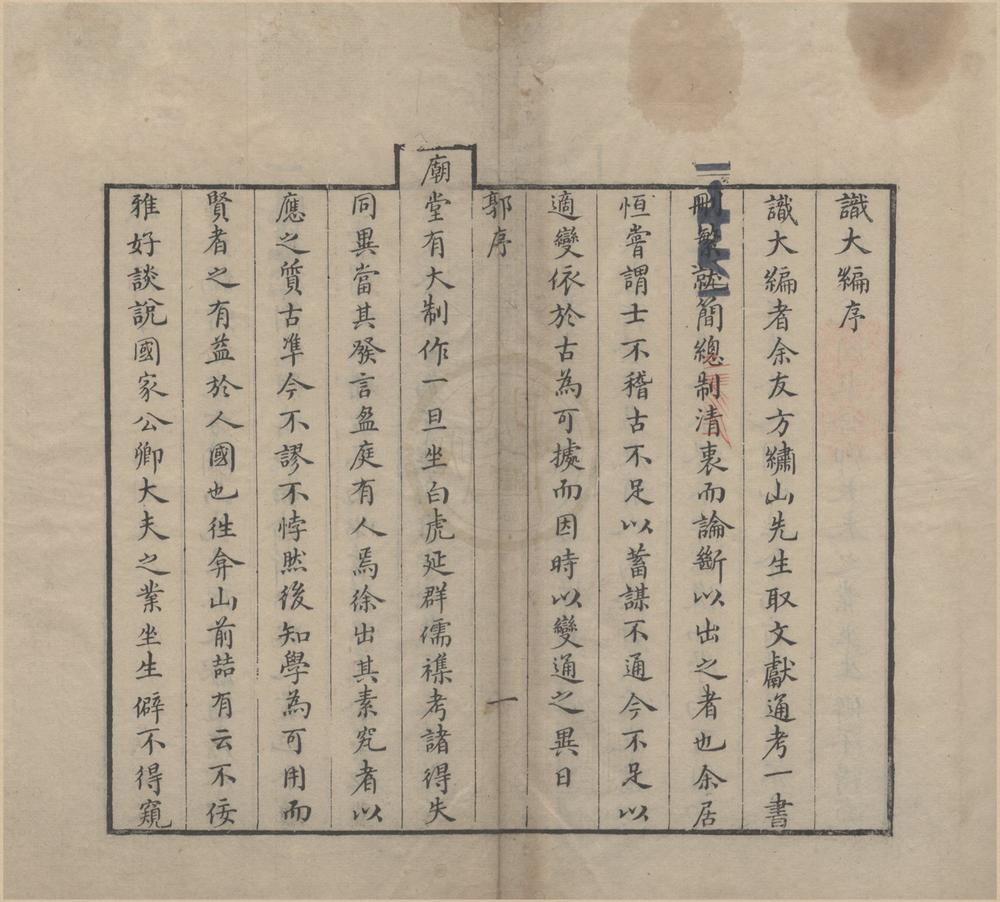 識大編序
識大編者余友方繡山先生取文獻通考一書
刪繁就簡總制清裏而論斷以出之者也余居
恒嘗謂士不稽古不足以蓄謀不通今不足以
適變依於古為可據而因時以變通之異日
郭序
一
廟堂有大制作一旦坐白虎延群儒襍考諸得失
同異當其發言盈庭有人焉徐出其素究者以
應之質古準今不謬不悖然後知學為可用而
賢者之有益於人國也徃弇山前喆有云不佞
雅好談說國家公卿大夫之業坐生僻不得窺